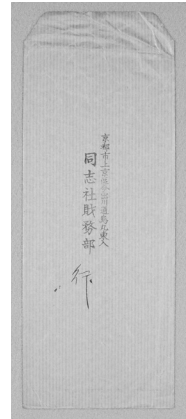 京都市上京區今出川通烏丸東入
同志社財務部
行